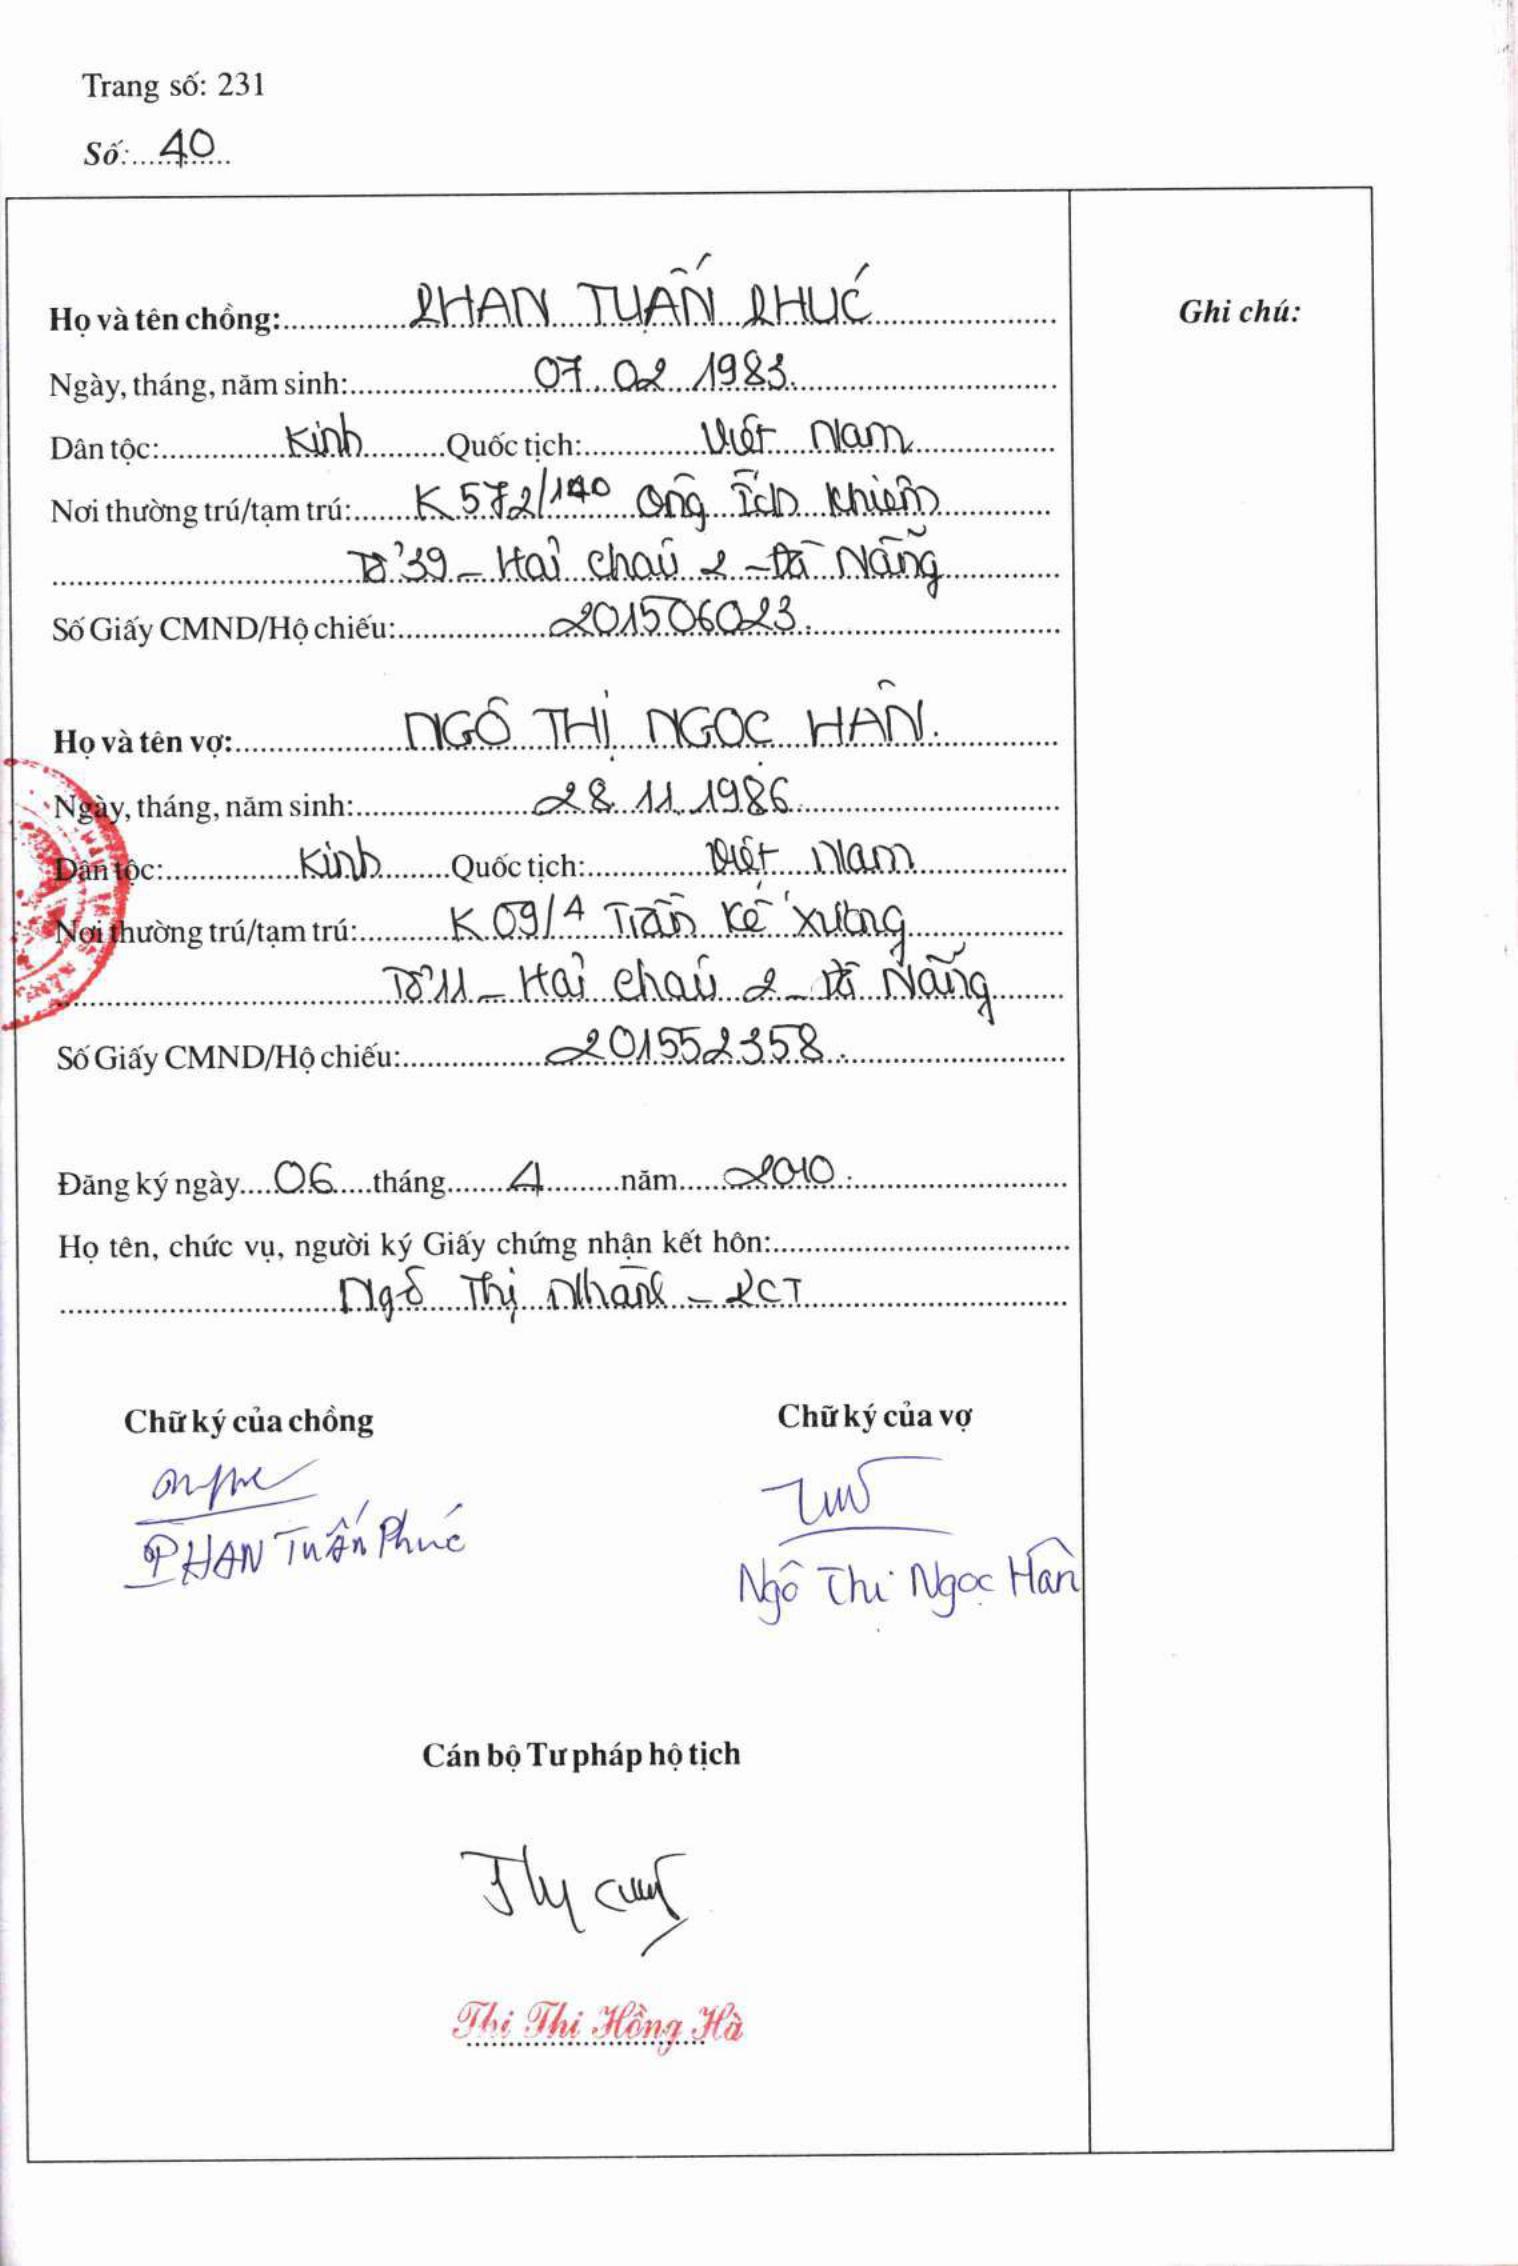 Trang số: 231
Số: 40
Họ và tên chồng: PHAN TUẤN PHÚC
Ghi chú:
Ngày, tháng, năm sinh: 07.02.1983
Dân tộc: Kinh Quốc tịch: Việt Nam
Nơi thường trú/tạm trú: K572/140 Ông Ích Khiêm
Tổ 39 - Hải Châu 2 - Đà Nẵng
Số Giấy CMND/Hộ chiếu: 201506023.
Họ và tên vợ: NGÔ THỊ NGỌC HÂN.
Ngày, tháng, năm sinh: 28.11.1986
Dân tộc: Kinh Quốc tịch: Việt Nam
Nơi thường trú/tạm trú: K09/4 Trần Kế Xương
Tổ 11 - Hải Châu 2 - Đà Nẵng
Số Giấy CMND/Hộ chiếu: 201552358.
Đăng ký ngày 06 tháng 4 năm 2010.
Họ tên, chức vụ, người ký Giấy chứng nhận kết hôn:
Ngô Thị - PCT
Chữ ký của chồng Chữ ký của vợ
PHAN Tuấn Phúc
Ngô Thị Ngọc Hân
Cán bộ Tư pháp hộ tịch
Thi Thi Hồng Hà